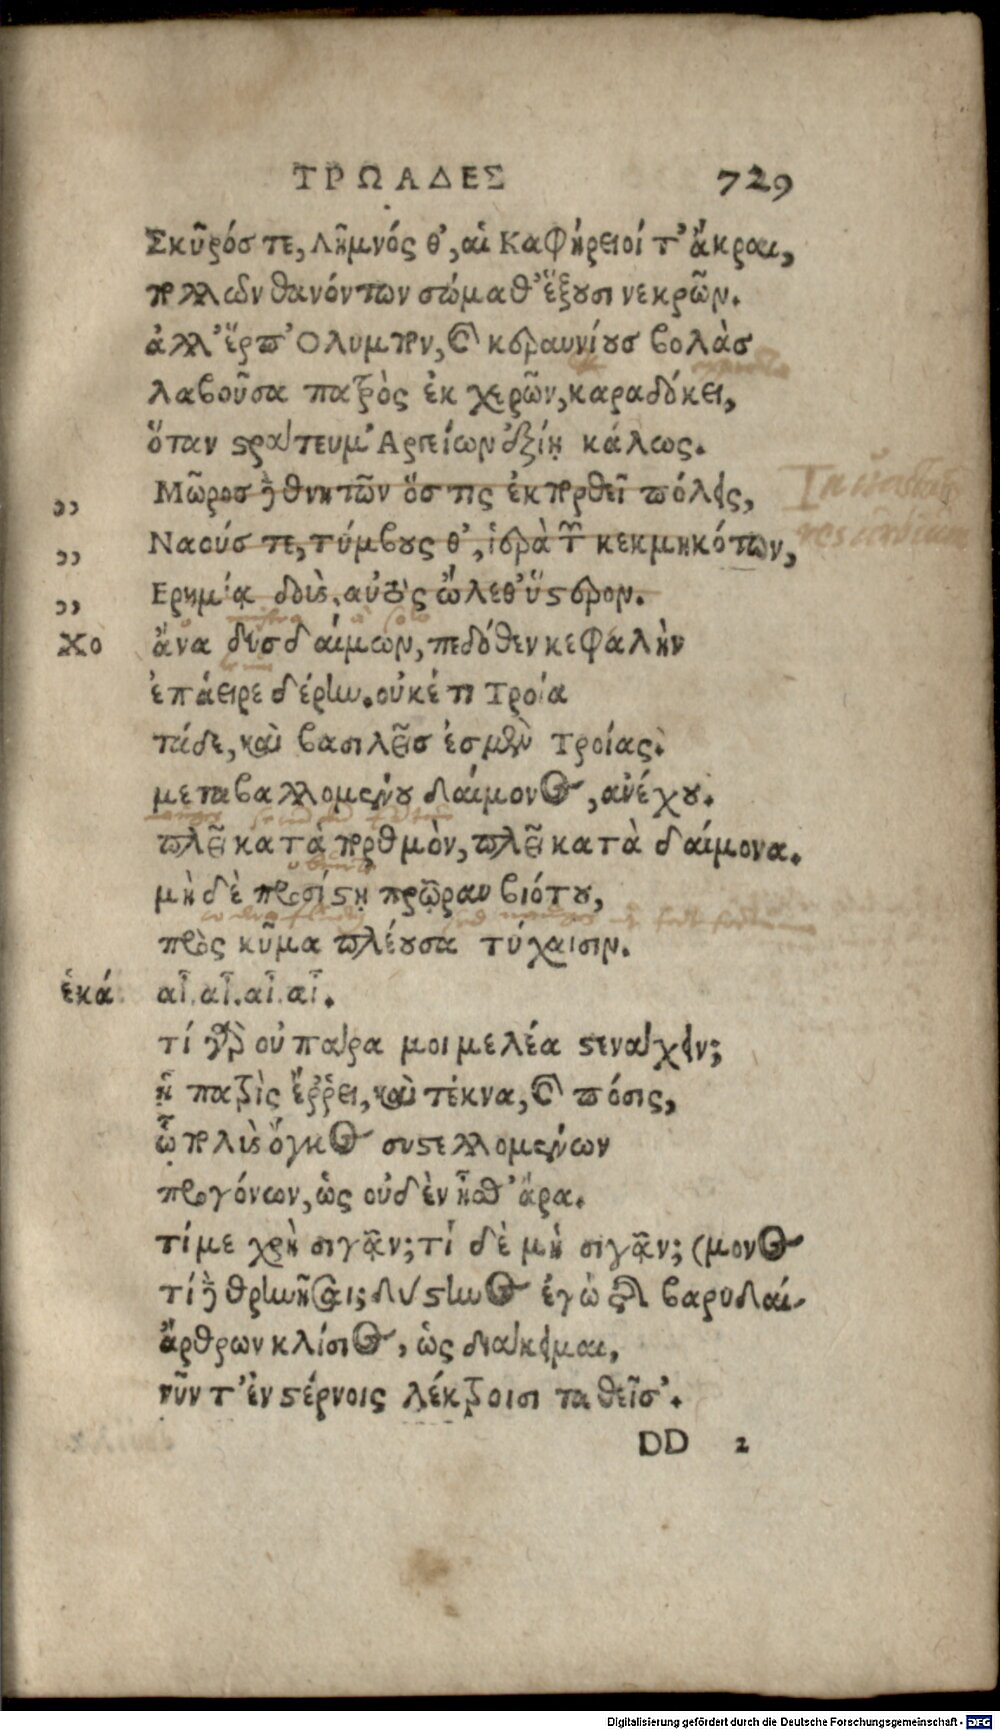 ΤΡΩΑΔΕΣ 729
Σκῦρός τε, Λῆμνός θ', αἱ Καφήρειοί τ' ἄκραι,
πολλῶν θανόντων σώμαθ' ἕξουσι νεκρῶν.
ἀλλ' ἕρπ' Ολυμπον, καὶ κεραυνίους βολὰς
λαβοῦσα πατρὸς ἐκ χερῶν, καραδόκει,
ὅταν στράτευμ' Αργείων ἐξίῃ κάλως.
„ Μῶρος δὲ θνητῶν ὅς τις ἐκπορθεῖ πόλεις,
„ Ναούς τε, τύμβους θ', ἱερὰ τῶν κεκμηκότων,
„ Ερημίᾳ δοὺς, αὐτὸς ὤλεθ' ὕστερον.
Χο ἄνα δύσδαίμων, πεδόθεν κεφαλὴν
ἐπάειρε δέρην. οὐκέτι Τροία
τάδε, καὶ βασιλεῖς ἐσμὲν Τροίας.
μεταβαλλομένου δαίμονος, ἀνέχου.
πλεῖ κατὰ πορθμὸν, πλεῖ κατὰ δαίμονα.
μηδὲ προσίστη πρῷραν βιότου,
πρὸς κῦμα πλέουσα τύχαισιν.
ἑκά αἶ. αἶ. αἶ. αἶ.
τί γὰρ οὐ πάρα μοι μελέα στενάχειν;
ᾗ πατρὶς ἔῤῥει, καὶ τέκνα, καὶ πόσις,
ὦ πολὺς ὄγκος συστελλομένων
προγόνων, ὡς οὐδὲν ἦσθ' ἄρα.
τί με χρὴ σιγᾷν; τί δὲ μὴ σιγᾷν; (μονος
τί δὲ θρηνῆσαι; δύστηνος ἐγὼ τῆς βαρυδαί-
ἄρθρων κλίσιος, ὡς διάκειμαι,
νῦν τ' ἐν στέρνοις λέκτροισι ταθεῖσ'.
DD 2
Digitalisierung gefördert durch die Deutsche Forschungsgemeinschaft - DFG